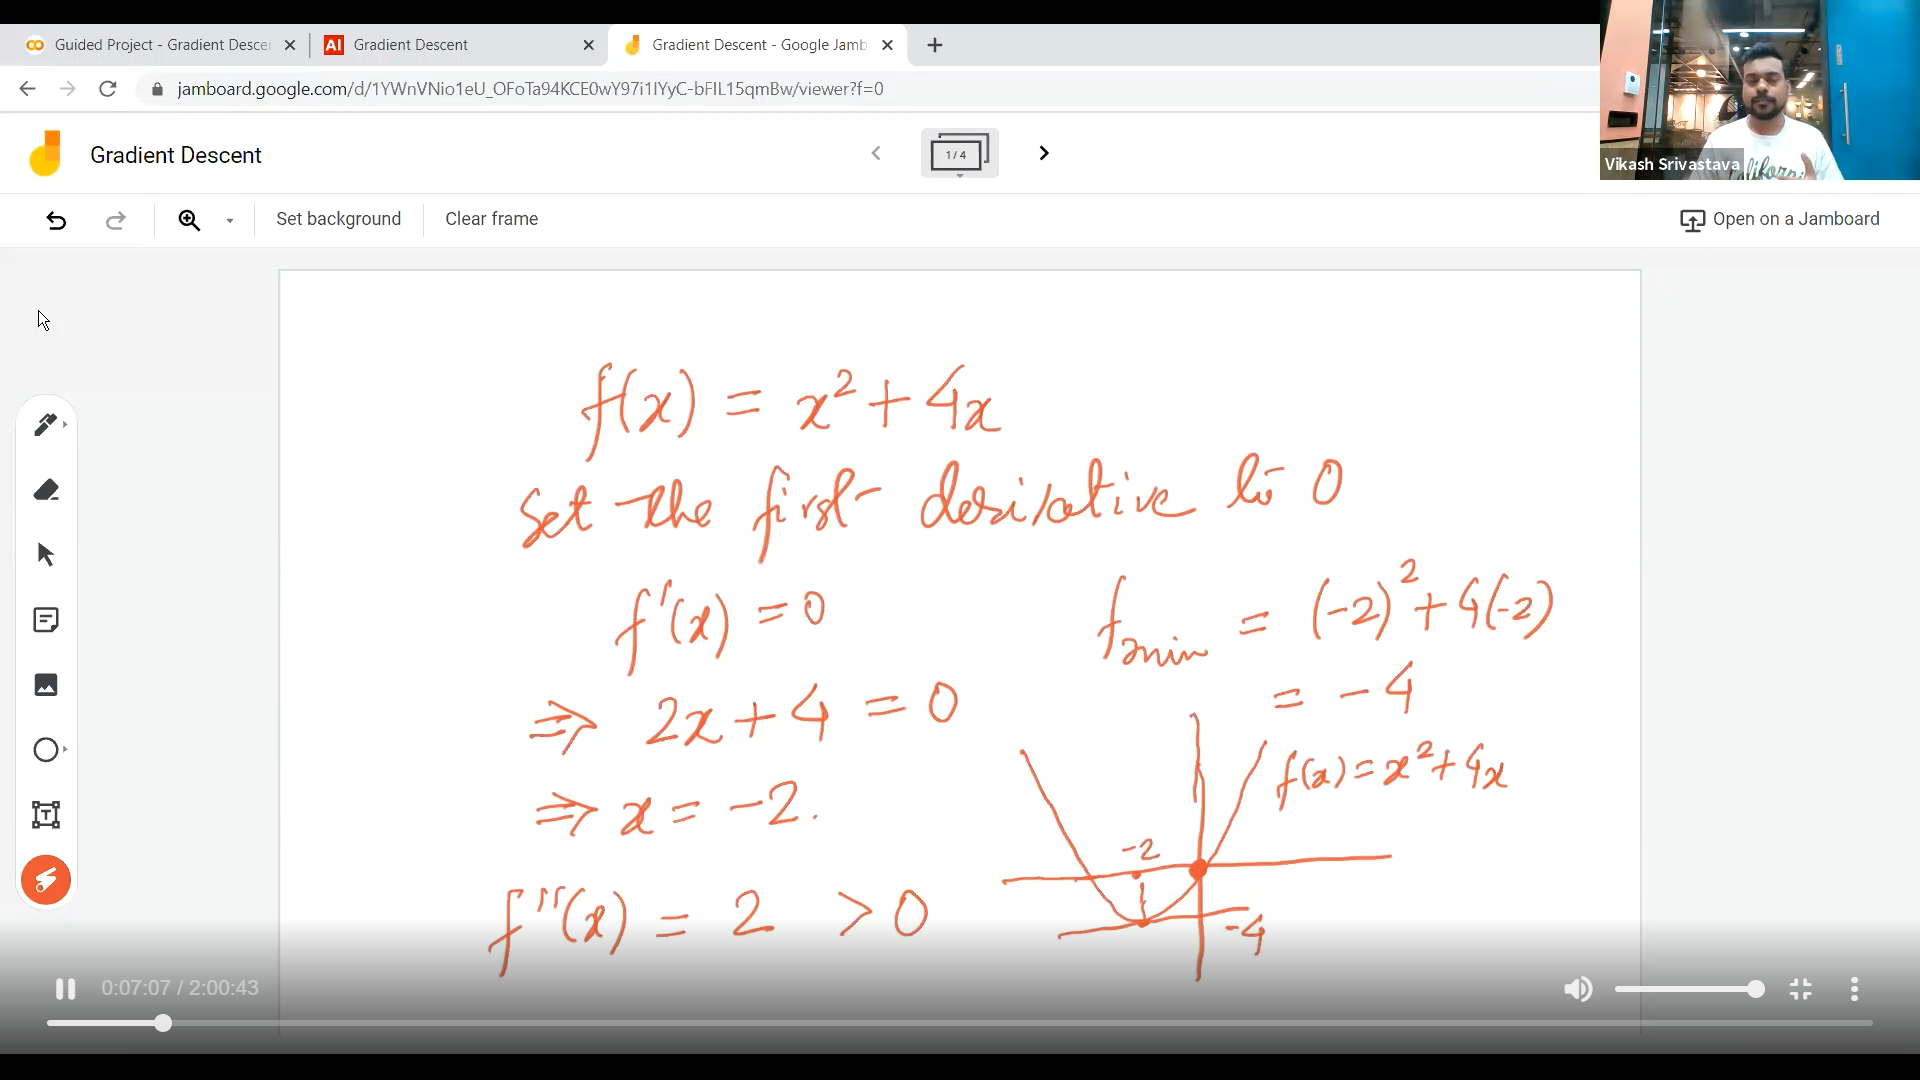 Guided Project - Gradient Descer
AI Gradient Descent
Gradient Descent - Google Jamb
jamboard.google.com/d/1YWnVNio1eU_OFoTa94KCE0wY97i1IYyC-bFIL15qmBw/viewer?f=0
Gradient Descent
1 / 4
Vikash Srivastava
California
Set background
Clear frame
Open on a Jamboard
f(x) = x² + 4x
Set the first derivative to 0
f'(x) = 0
⇒ 2x + 4 = 0
⇒ x = -2.
f''(x) = 2 > 0
fmin = (-2)² + 4(-2)
= -4
f(x) = x² + 4x
-2
-4
0:07:07 / 2:00:43